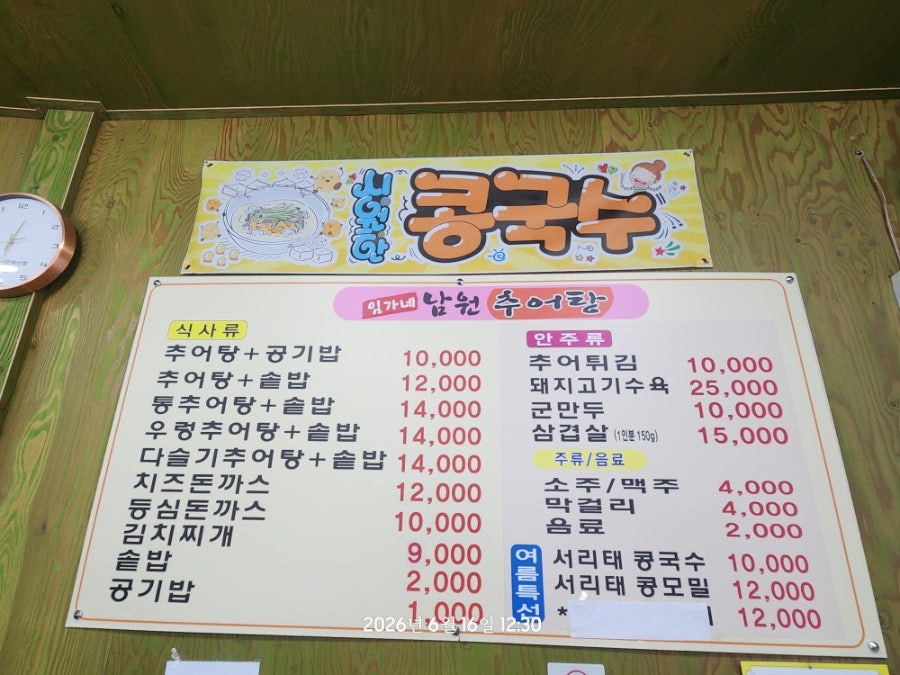 구수한
콩국수
임가네 남원 추어탕
식사류
추어탕+공기밥 10,000
추어탕+솥밥 12,000
통추어탕+솥밥 14,000
우렁추어탕+솥밥 14,000
다슬기추어탕+솥밥 14,000
치즈돈까스 12,000
등심돈까스 10,000
김치찌개 9,000
솥밥 2,000
공기밥 1,000
안주류
추어튀김 10,000
돼지고기수육 25,000
군만두 10,000
삼겹살 (1인분 150g) 15,000
주류/음료
소주/맥주 4,000
막걸리 4,000
음료 2,000
여름특선
서리태 콩국수 10,000
서리태 콩모밀 12,000
* 12,000
2026년 6월 16일 12:30